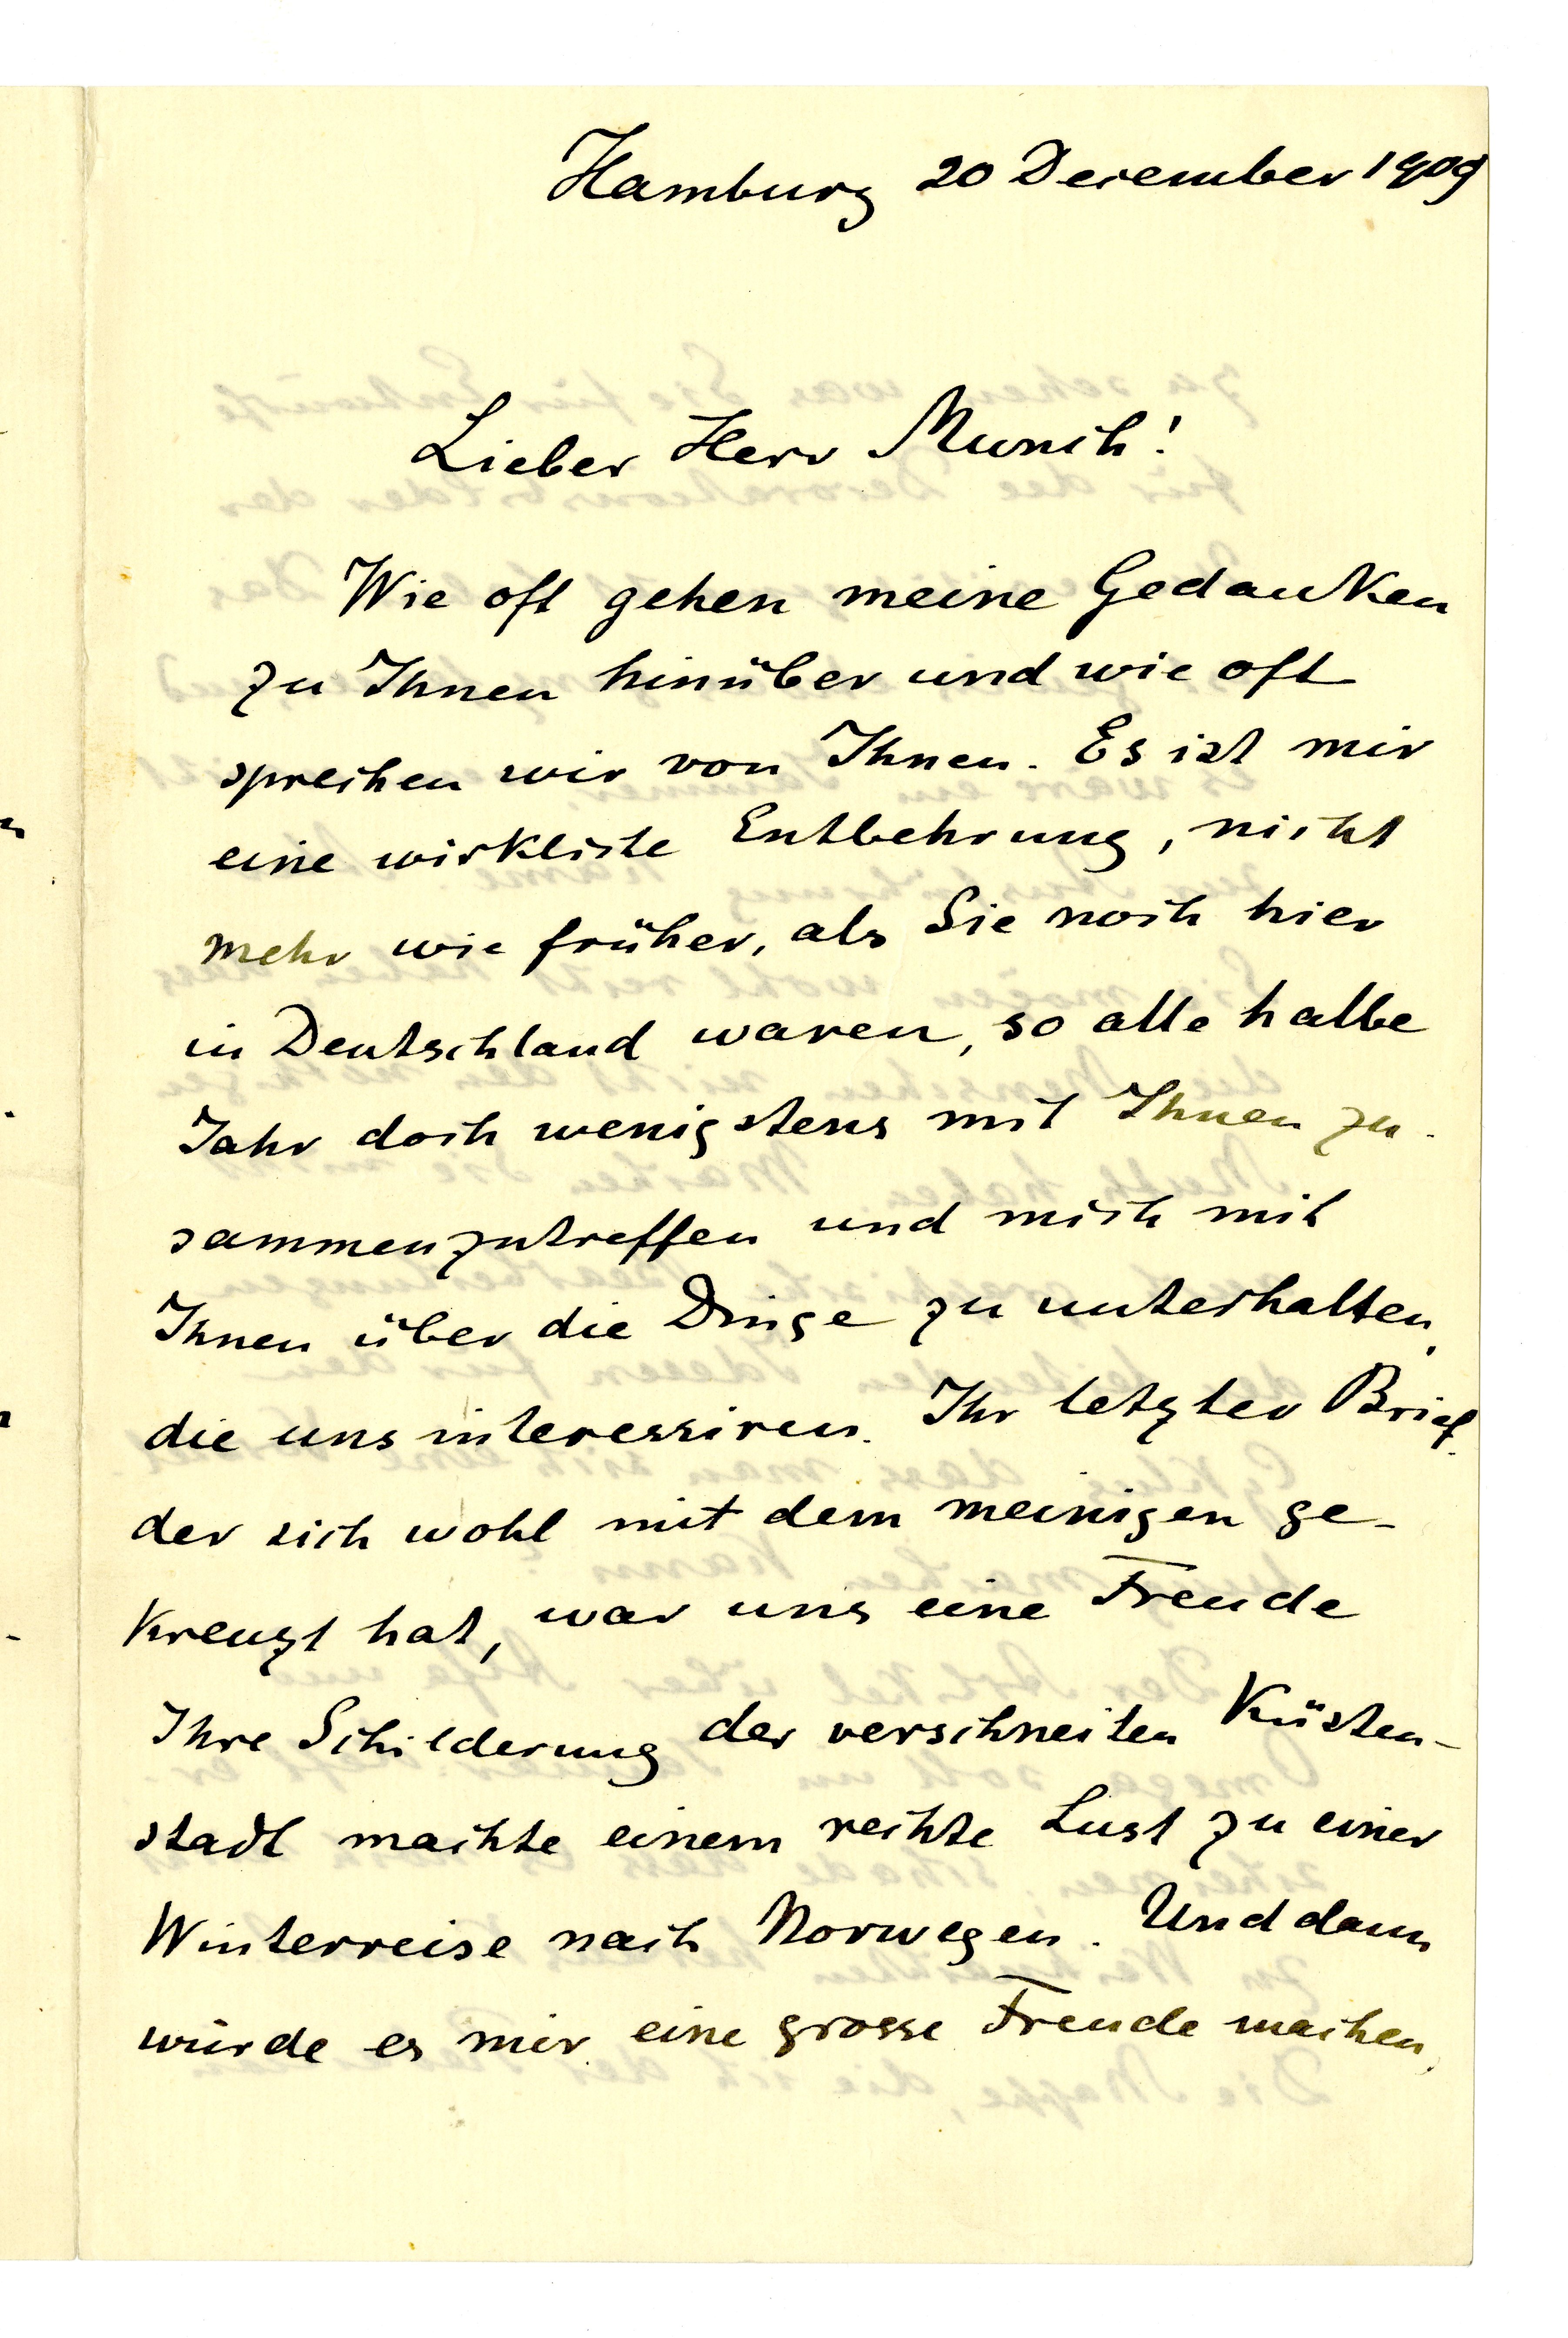 Hamburg 20 December 1909
Lieber Herr Munch!
Wie oft gehen meine Gedanken
zu Ihnen hinüber und wie oft
sprechen wir von Ihnen. Es ist mir
eine wirkliche Entbehrung, nicht
mehr wie früher, als Sie noch hier
in Deutschland waren, so alle halbe
Jahr doch wenigstens mit Ihnen zu-
sammenzutreffen und mich mit
Ihnen über die Dinge zu unterhalten,
die uns interessiren. Ihr letzter Brief,
der sich wohl mit dem meinigen ge-
kreuzt hat, war uns eine Freude
Ihre Schilderung der verschneiten Küsten-
stadt machte einem rechte Lust zu einer
Winterreise nach Norwegen. Und dann
würde es mir eine grosse Freude machen,